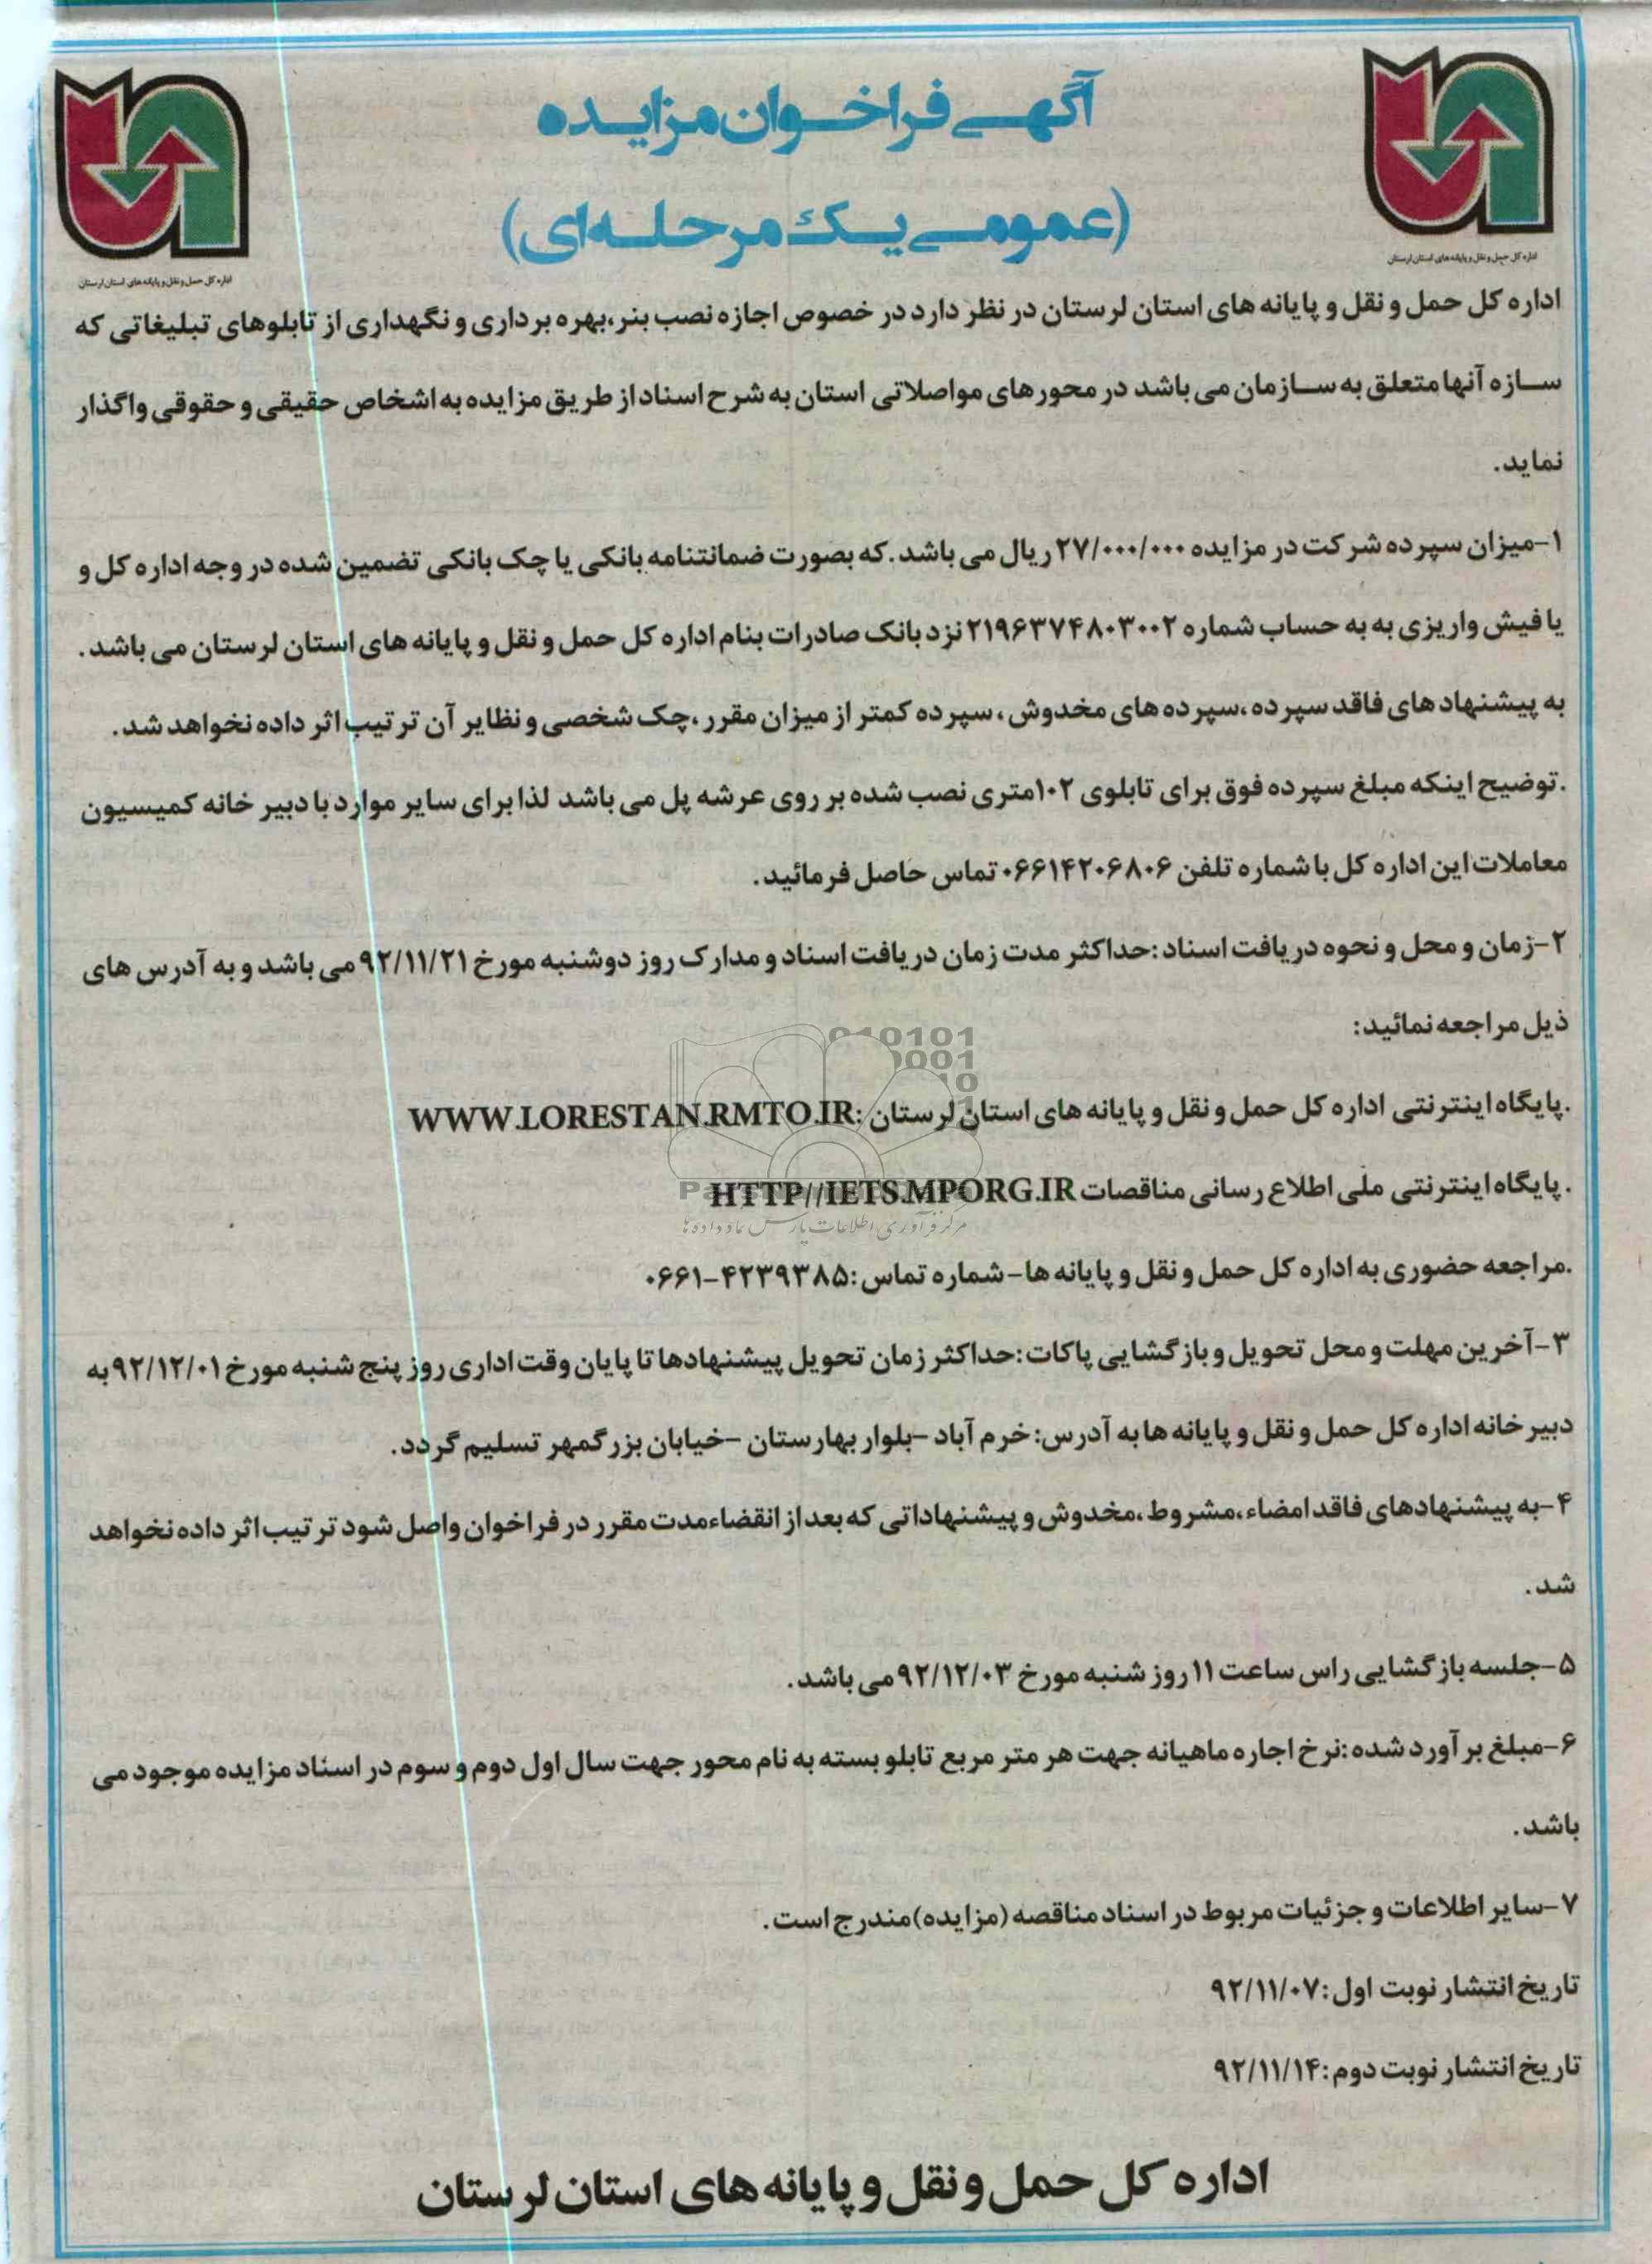 آگهی فراخوان مزایده
(عمومی یک مرحله ای)
اداره کل حمل و نقل و پایانه های استان لرستان
اداره کل حمل و نقل و پایانه های استان لرستان
اداره کل حمل و نقل و پایانه های استان لرستان در نظر دارد در خصوص اجازه نصب بنر،بهره برداری و نگهداری از تابلوهای تبلیغاتی که
سازه آنها متعلق به سازمان می باشد در محورهای مواصلاتی استان به شرح اسناد از طریق مزایده به اشخاص حقیقی و حقوقی واگذار
نماید.
۱-میزان سپرده شرکت در مزایده ۲۷/۰۰۰/۰۰۰ ریال می باشد.که بصورت ضمانتنامه بانکی یا چک بانکی تضمین شده در وجه اداره کل و
یا فیش واریزی به به حساب شماره ۲۱۹۶۳۷۴۸۰۳۰۰۲ نزد بانک صادرات بنام اداره کل حمل و نقل و پایانه های استان لرستان می باشد.
به پیشنهادهای فاقد سپرده،سپرده های مخدوش، سپرده کمتر از میزان مقرر،چک شخصی و نظایر آن ترتیب اثر داده نخواهد شد.
.توضیح اینکه مبلغ سپرده فوق برای تابلوی ۱۰۲متری نصب شده بر روی عرشه پل می باشد لذا برای سایر موارد با دبیر خانه کمیسیون
معاملات این اداره کل با شماره تلفن ۰۶۶۱۴۲۰۶۸۰۶ تماس حاصل فرمائید.
۲-زمان و محل و نحوه دریافت اسناد:حداکثر مدت زمان دریافت اسناد و مدارک روز دوشنبه مورخ ۹۲/۱۱/۲۱می باشد و به آدرس های
ذیل مراجعه نمائید:
.پایگاه اینترنتی اداره کل حمل و نقل و پایانه های استان لرستان :WWW.LORESTAN.RMTO.IR
.پایگاه اینترنتی ملی اطلاع رسانی مناقصات HTTP//IETS.MPORG.IR
مرکز فرآوری اطلاعات پارس نماد داده ها
.مراجعه حضوری به اداره کل حمل و نقل و پایانه ها-شماره تماس:۴۲۳۹۳۸۵-۰۶۶۱
۳-آخرین مهلت و محل تحویل و بازگشایی پاکات:حداکثر زمان تحویل پیشنهادها تا پایان وقت اداری روز پنج شنبه مورخ ۹۲/۱۲/۰۱به
دبیر خانه اداره کل حمل و نقل و پایانه ها به آدرس: خرم آباد -بلوار بهارستان -خیابان بزرگمهر تسلیم گردد.
۴-به پیشنهادهای فاقد امضاء،مشروط،مخدوش و پیشنهاداتی که بعد از انقضاءمدت مقرر در فراخوان واصل شود ترتیب اثر داده نخواهد
شد.
۵-جلسه بازگشایی راس ساعت ۱۱روز شنبه مورخ ۹۲/۱۲/۰۳می باشد.
۶-مبلغ برآورد شده:نرخ اجاره ماهیانه جهت هر متر مربع تابلو بسته به نام محور جهت سال اول دوم و سوم در اسناد مزایده موجود می
باشد.
۷-سایر اطلاعات و جزئیات مربوط در اسناد مناقصه (مزایده)مندرج است.
تاریخ انتشار نوبت اول:۹۲/۱۱/۰۷
تاریخ انتشار نوبت دوم:۹۲/۱۱/۱۴
اداره کل حمل و نقل و پایانه های استان لرستان